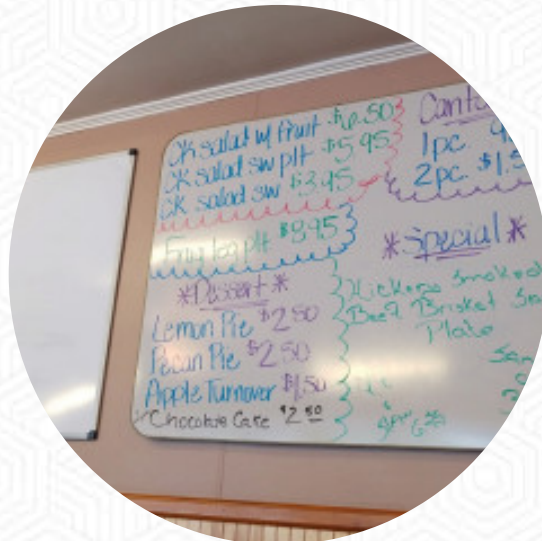 CK salad w/ fruit $6.50
CK salad sw plt $5.95
CK salad sw $3.95
Frog leg plt $8.95
*Dessert*
Lemon Pie $2.50
Pecan Pie $2.50
Apple Turnover $1.50
Chocolate Cake $2.50
Canta
1pc.
2pc. $1.5
*Special*
Hickory Smoked
Beef Brisket
Plate